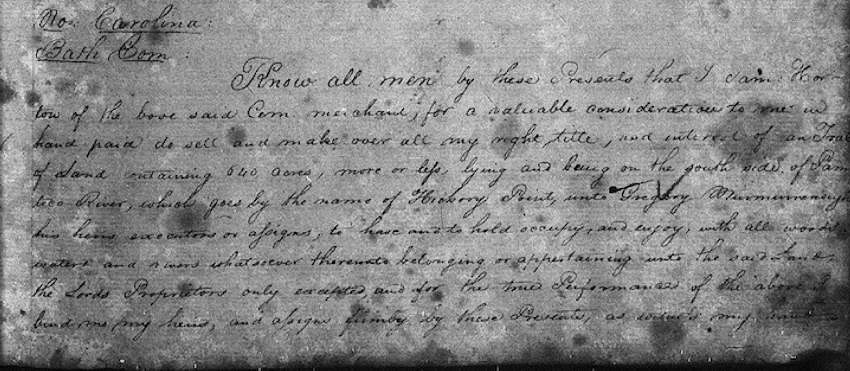 No: Carolina:
Bath Com:
Know all men by these Presents that I Sam: Hor-
tow of the bove said Com. merchand, for a valuable consideration to me in
hand paid do sell and make over all my right, title, and interest of an Trac
of Land containing 640 acres, more or less, lying and being on the south side, of Pam
tico River, which goes by the name of Hickory Point, unto Gregory
his heirs executors or assigns, to have and to hold occupy, and enjoy, with all woods
waters and rivers whatsoever thereunto belonging or appertaining unto the said Land
the Lords Proprietors only excepted, and for the true Performance of the above I
bind me, my heirs, and assigns firmly by these Presents, as witness my hand